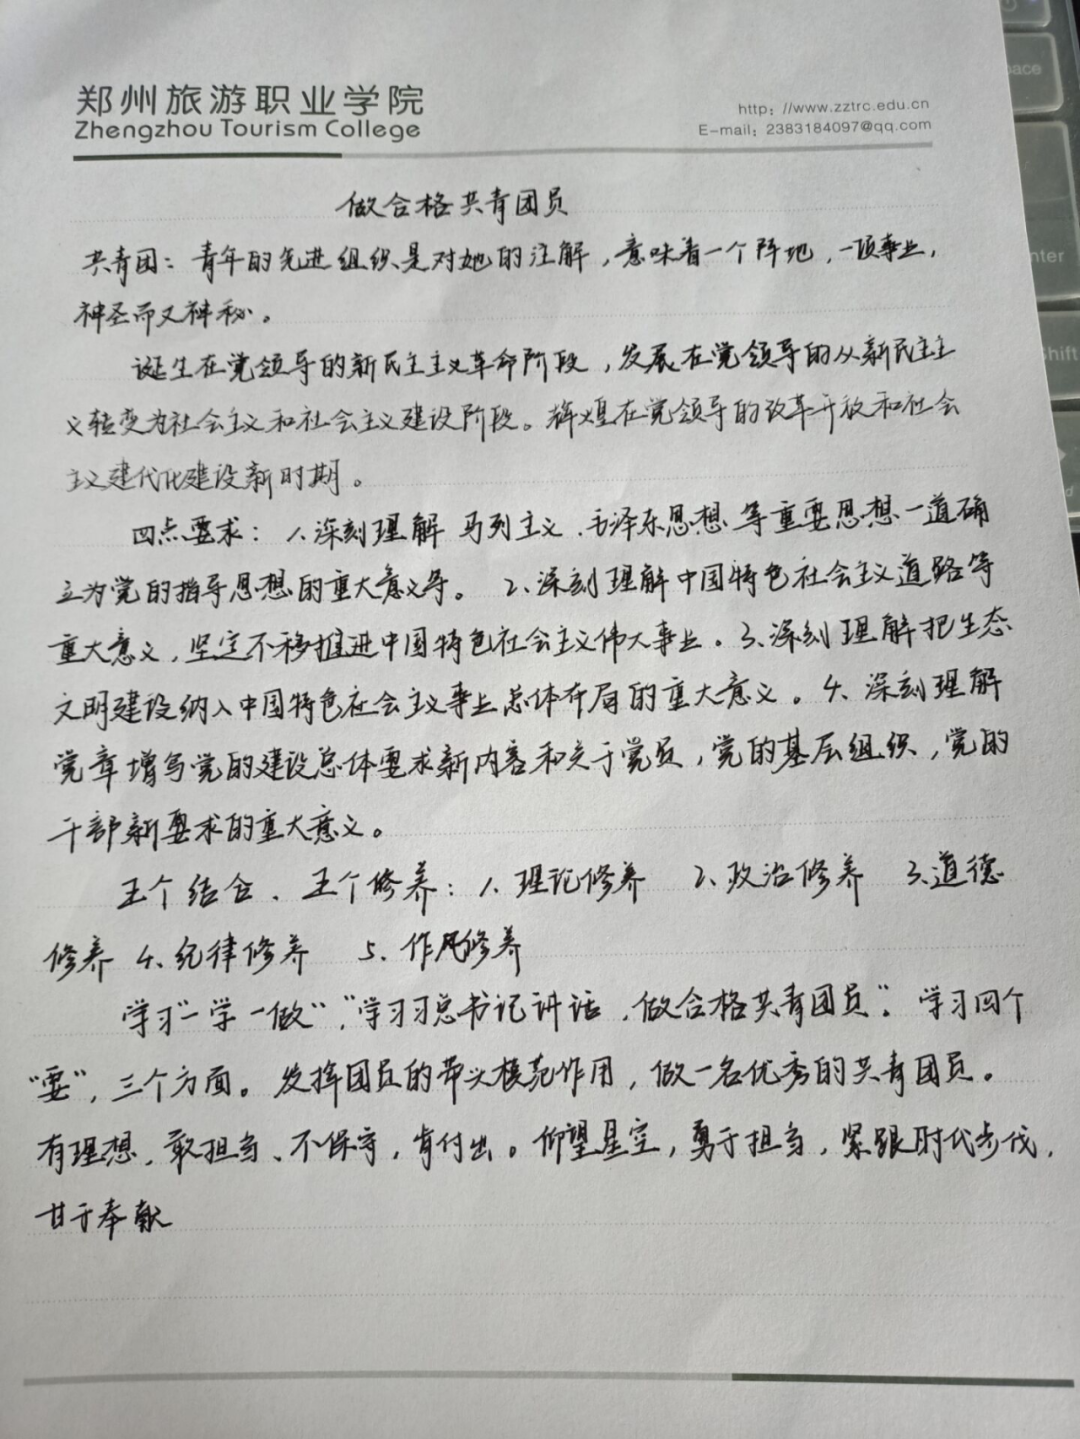 郑州旅游职业学院
Zhengzhou Tourism College
http: //www.zztrc.edu.cn
E-mail: 2383184097@qq.com
做合格共青团员
共青团：青年的先进组织是对她的注解，意味着一个阵地，一项事业，
神圣而又神秘。
诞生在党领导的新民主主义革命阶段，发展在党领导的从新民主主
义转变为社会主义和社会主义建设阶段。辉煌在党领导的改革开放和社会
主义建代化建设新时期。
四点要求：1.深刻理解 马列主义、毛泽东思想 等重要思想一道确
立为党的指导思想的重大意义等。 2、深刻理解中国特色社会主义道路等
重大意义，坚定不移推进中国特色社会主义伟大事业。3、深刻理解把生态
文明建设纳入中国特色社会主义事业总体布局的重大意义。4、深刻理解
党章增写党的建设总体要求新内容和关于党员，党的基层组织，党的
干部新要求的重大意义。
五个结合、五个修养：1、理论修养 2、政治修养 3、道德
修养 4、纪律修养 5、作风修养
学习"一学一做"，"学习习总书记讲话，做合格共青团员"。学习四个
"要"，三个方面。发挥团员的带头模范作用，做一名优秀的共青团员。
有理想，敢担当、不保守，肯付出。仰望星空，勇于担当，紧跟时代步伐，
甘于奉献
space
enter
shift